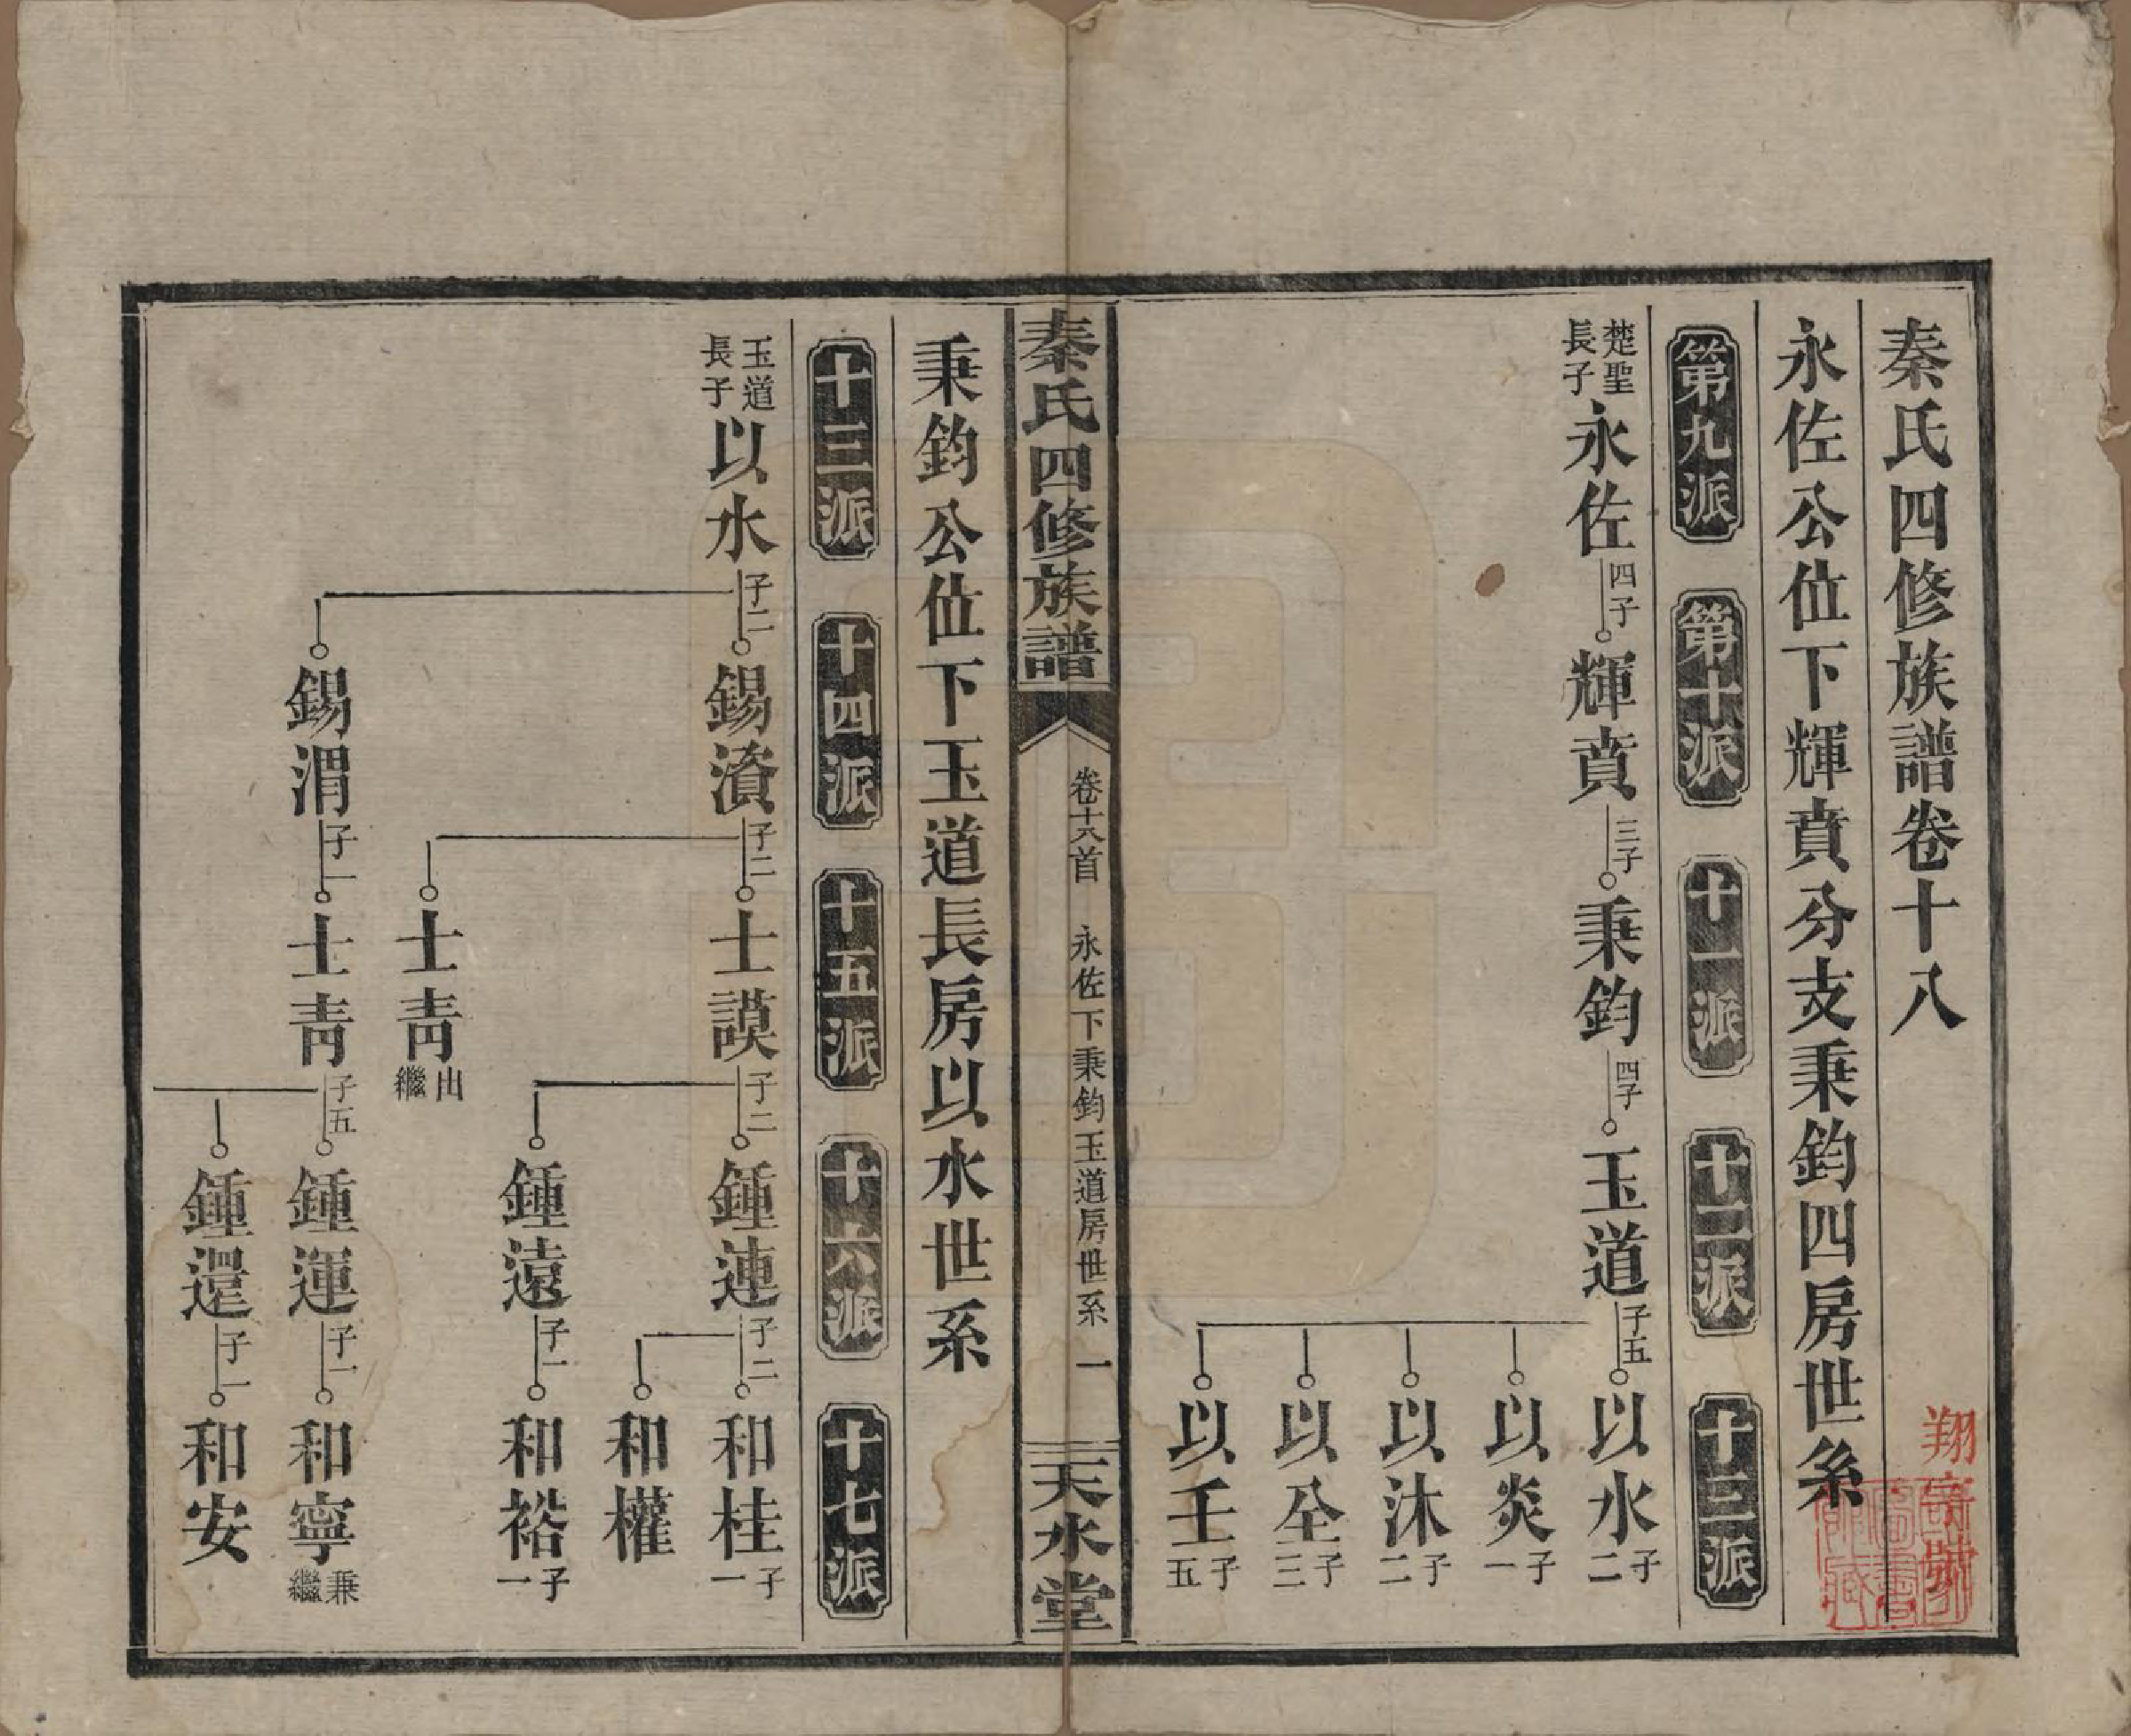 秦氏四修族譜卷十八
永佐公位下輝賁分支秉鈞四房世系
第九派 第十派 十一派 十二派 十三派
楚聖長子 永佐 四子 輝賁 三子 秉鈞 四子 玉道 子五 以水 子二
以炎 子一
以沐 子二
以坌 子三
以壬 子五
秦氏四修族譜 卷十八首 永佐下秉鈞玉道房世系 一 天水堂
秉鈞公位下玉道長房以水世系
十三派 十四派 十五派 十六派 十七派
玉道長子 以水 子二 錫濱 子二 士謨 子二 鍾連 子二 和桂 子一
和權
鍾遠 子一 和裕 子一
士靑 出繼
錫渭 子一 士靑 子五 鍾運 子一 和寧 兼繼
鍾還 子一 和安